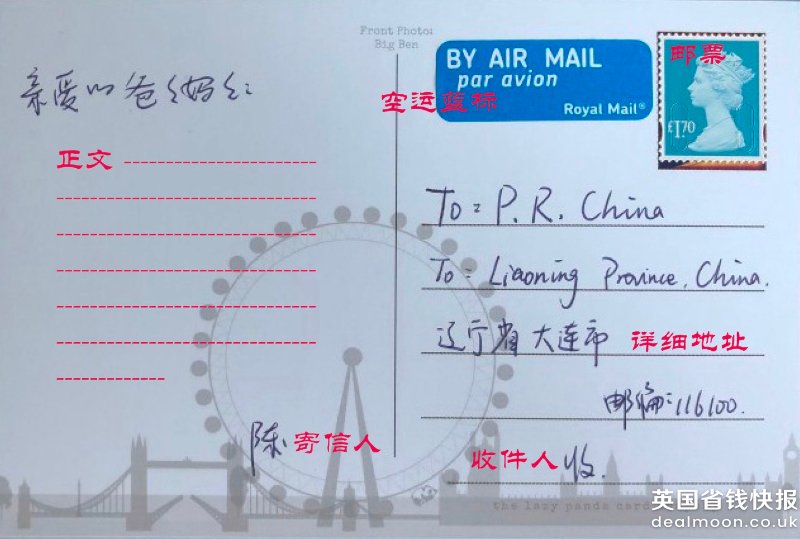 Front Photo:
Big Ben
BY AIR MAIL
par avion
Royal Mail®
空运蓝标
邮票
£1.70
亲爱的爸爸妈妈:
正文
To: P. R. China
To: Liaoning Province, China.
辽宁省大连市 详细地址
邮编:116100.
陈 寄信人
收件人 收.
the lazy panda
英国省钱快报
dealmoon.co.uk